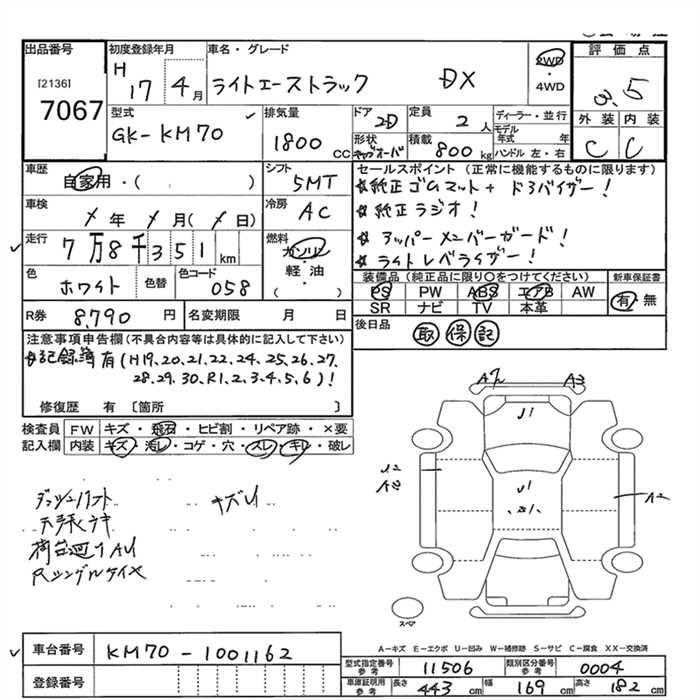 出品番号 初度登録年月 車名・グレード 評価点
[2136] 7067
H 17 4月 ライトエーストラック DX 2WD ・4WD 3.5
外装 内装
C C
型式 GK-KM70 排気量 1800 CC ドア 2D 定員 2人 ディーラー・並行
形状 キャブオーバ 積載 800 kg モデル年式 年 ハンドル 左・右
車歴 自家用・( ) シフト 5MT
車検 年 月 ( 日) 冷房 AC
走行 7万8千351km 燃料 ガソリン 軽油 ( )
色 ホワイト 色替 色コード 058
R券 8,790円 名変期限 月 日
セールスポイント(正常に機能するものに限ります)
☆純正ゴムマット+ドアバイザー!
☆純正ラジオ!
☆アッパーメンバーガード!
☆ライトレベライザー!
装備品(純正品に限り○をつけてください) 新車保証書
PS PW ABS エアB AW 有・無
SR ナビ TV 本革
後日品 取 保 記
注意事項申告欄(不具合内容等は具体的に記入して下さい)
☆記録簿有(H19.20.21.22.24.25.26.27.
28.29.30.R1.2.3.4.5.6)!
修復歴 有 [箇所 ]
検査員 FW キズ・飛石・ヒビ割・リペア跡・×要
記入欄 内装 キズ・汚レ・コゲ・穴・スレ・キレ・破レ
キズU
荷台廻りAU
Rシングルタイヤ
A3
U1
U1
A2
スペア
A-キズ E-エクボ U-凹み W-補修跡 S-サビ C-腐食 XX-交換済
車台番号 KM70-1001162
登録番号
型式指定番号 参考 11506 類別区分番号 参考 0004
車庫証明用 参考 長さ 443 cm 幅 168 cm 高さ 182 cm